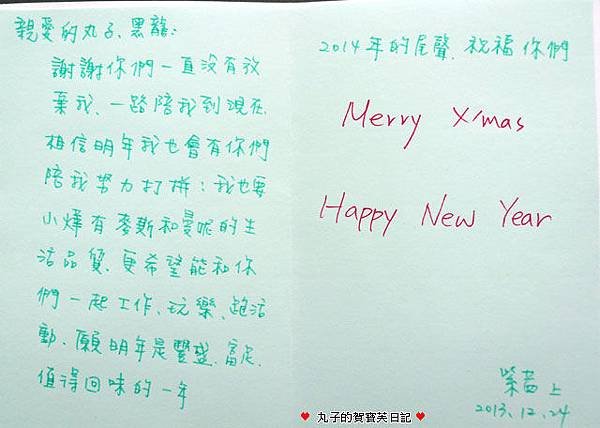 親愛的丸子、黑龍:
謝謝你們一直沒有放
棄我、一路陪我到現在.
相信明年我也會有你們
陪我努力打拼;我也要
小燁有麥斯和曼呢的生
活品質.更希望能和你
們一起工作、玩樂、跑活
動.願明年是豐盛.富足.
值得回味的一年
2014年的尾聲.祝福你們
Merry X'mas
Happy New Year
上
2013.12.24
♥ 丸子的賀寶芙日記 ♥